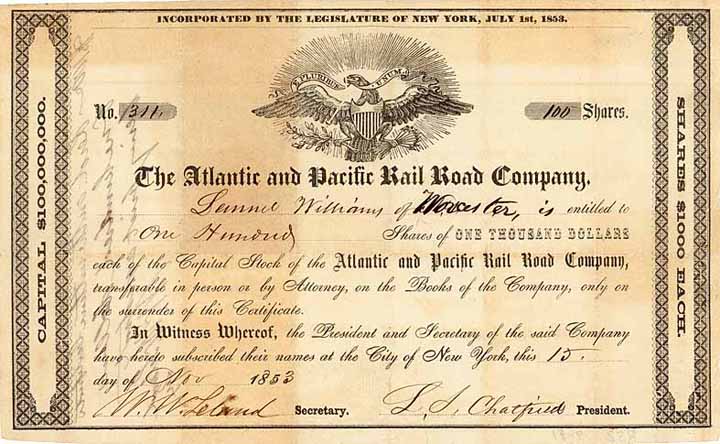 INCORPORATED BY THE LEGISLATURE OF NEW YORK, JULY 1st, 1853.
E PLURIBUS UNUM
No. 1311. 100 Shares.
CAPITAL $100,000,000.
SHARES $1000 EACH.
The Atlantic and Pacific Rail Road Company.
Samuel Williams of Worcester, is entitled to
One Hundred Shares of ONE THOUSAND DOLLARS
each of the Capital Stock of the Atlantic and Pacific Rail Road Company,
transferable in person or by Attorney, on the Books of the Company, only on
the surrender of this Certificate.
In Witness Whereof, the President and Secretary of the said Company
have hereto subscribed their names at the City of New York, this 15.
day of Nov 1853
W. W. Leland Secretary. L. S. Chatfield President.